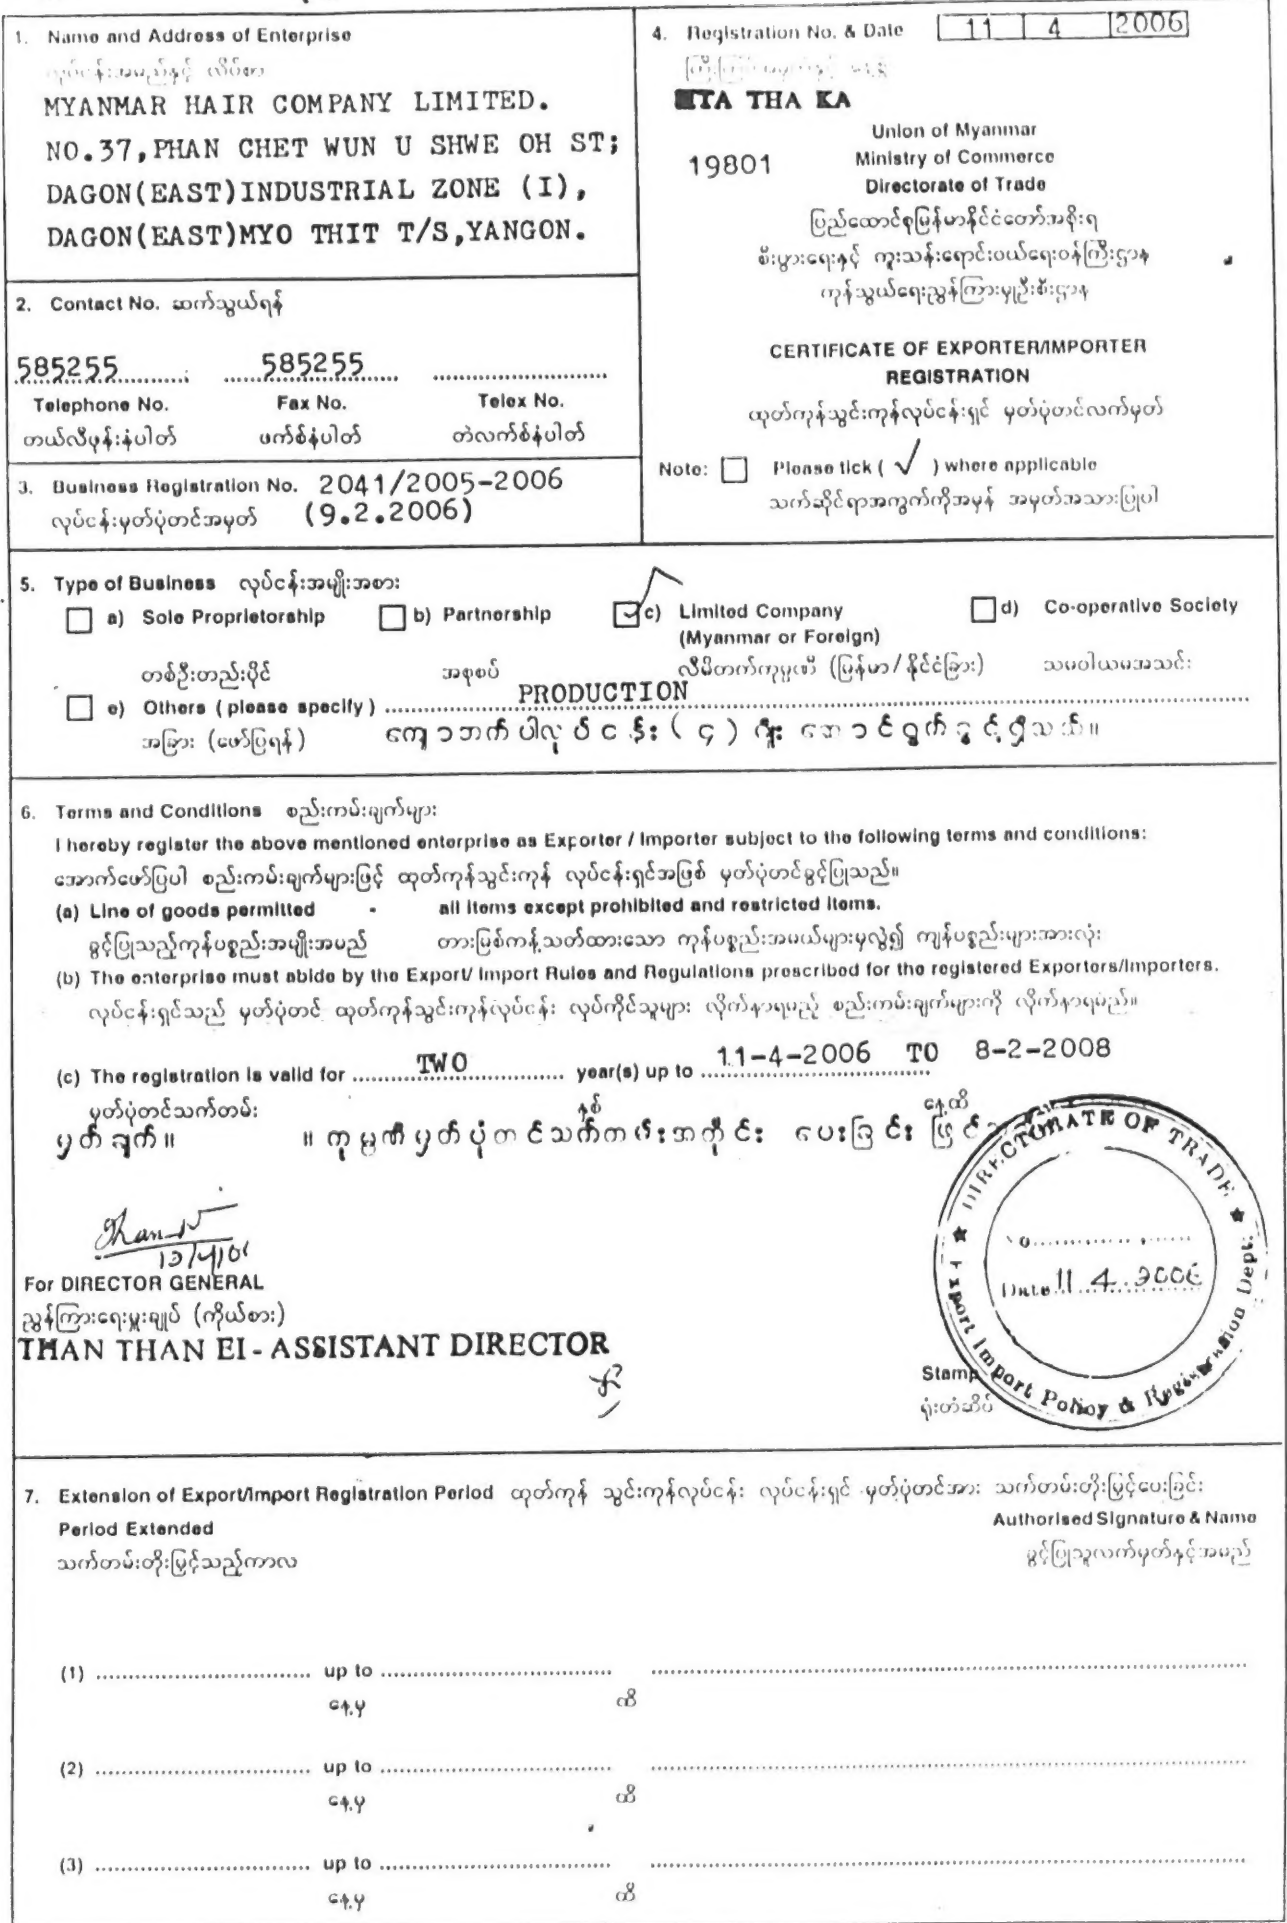 1. Name and Address of Enterprise
လုပ်ငန်းအမည်နှင့် လိပ်စာ
MYANMAR HAIR COMPANY LIMITED.
NO.37,PHAN CHET WUN U SHWE OH ST;
DAGON(EAST)INDUSTRIAL ZONE (I),
DAGON(EAST)MYO THIT T/S,YANGON.
2. Contact No. ဆက်သွယ်ရန်
585255 585255
Telephone No. Fax No. Telex No.
တယ်လီဖုန်းနံပါတ် ဖက်စ်နံပါတ် တဲလက်စ်နံပါတ်
3. Business Registration No. 2041/2005-2006
လုပ်ငန်းမှတ်ပုံတင်အမှတ် (9.2.2006)
4. Registration No. & Date 11 4 2006
TA THA KA
19801
Union of Myanmar
Ministry of Commerce
Directorate of Trade
ပြည်ထောင်စုမြန်မာနိုင်ငံတော်အစိုးရ
စီးပွားရေးနှင့် ကူးသန်းရောင်းဝယ်ရေးဝန်ကြီးဌာန
ကုန်သွယ်ရေးညွှန်ကြားမှုဦးစီးဌာန
CERTIFICATE OF EXPORTER/IMPORTER
REGISTRATION
ထုတ်ကုန်သွင်းကုန်လုပ်ငန်းရှင် မှတ်ပုံတင်လက်မှတ်
Note: Please tick ( ✓ ) where applicable
သက်ဆိုင်ရာအကွက်ကိုအမှန် အမှတ်အသားပြုပါ
5. Type of Business လုပ်ငန်းအမျိုးအစား
a) Sole Proprietorship b) Partnership c) Limited Company d) Co-operative Society
(Myanmar or Foreign)
တစ်ဦးတည်းပိုင် အစုစပ် လီမိတက်ကုမ္ပဏီ (မြန်မာ/နိုင်ငံခြား) သမဝါယမအသင်း
e) Others ( please specify ) PRODUCTION
အခြား (ဖော်ပြရန်) ကျောဘက်ပါလုပ်ငန်း (၄) မျိုး ဆောင်ရွက်ခွင့်ရှိသည်။
6. Terms and Conditions စည်းကမ်းချက်များ
I hereby register the above mentioned enterprise as Exporter / Importer subject to the following terms and conditions:
အောက်ဖော်ပြပါ စည်းကမ်းချက်များဖြင့် ထုတ်ကုန်သွင်းကုန် လုပ်ငန်းရှင်အဖြစ် မှတ်ပုံတင်ခွင့်ပြုသည်။
(a) Line of goods permitted - all items except prohibited and restricted items.
ခွင့်ပြုသည့်ကုန်ပစ္စည်းအမျိုးအမည် တားမြစ်ကန့်သတ်ထားသော ကုန်ပစ္စည်းအမယ်များမှလွဲ၍ ကျန်ပစ္စည်းများအားလုံး
(b) The enterprise must abide by the Export/ Import Rules and Regulations prescribed for the registered Exporters/Importers.
လုပ်ငန်းရှင်သည် မှတ်ပုံတင် ထုတ်ကုန်သွင်းကုန်လုပ်ငန်း လုပ်ကိုင်သူများ လိုက်နာရမည့် စည်းကမ်းချက်များကို လိုက်နာရမည်။
(c) The registration is valid for TWO year(s) up to 11-4-2006 TO 8-2-2008
မှတ်ပုံတင်သက်တမ်း နှစ် နေ့ထိ
မှတ်ချက်။ ။ ကုမ္ပဏီမှတ်ပုံတင်သက်တမ်းအတိုင်း ပေးခြင်း
For DIRECTOR GENERAL
ညွှန်ကြားရေးမှူးချုပ် (ကိုယ်စား)
THAN THAN EI - ASSISTANT DIRECTOR
DIRECTORATE OF TRADE
No
Date 11.4.2006
Export Import Policy & Registration Dept:
Stamp
ရုံးတံဆိပ်
7. Extension of Export/Import Registration Period ထုတ်ကုန် သွင်းကုန်လုပ်ငန်း လုပ်ငန်းရှင် မှတ်ပုံတင်အား သက်တမ်းတိုးမြှင့်ပေးခြင်း
Period Extended Authorised Signature & Name
သက်တမ်းတိုးမြှင့်သည့်ကာလ ခွင့်ပြုသူလက်မှတ်နှင့်အမည်
(1) up to
နေ့မှ ထိ
(2) up to
နေ့မှ ထိ
(3) up to
နေ့မှ ထိ